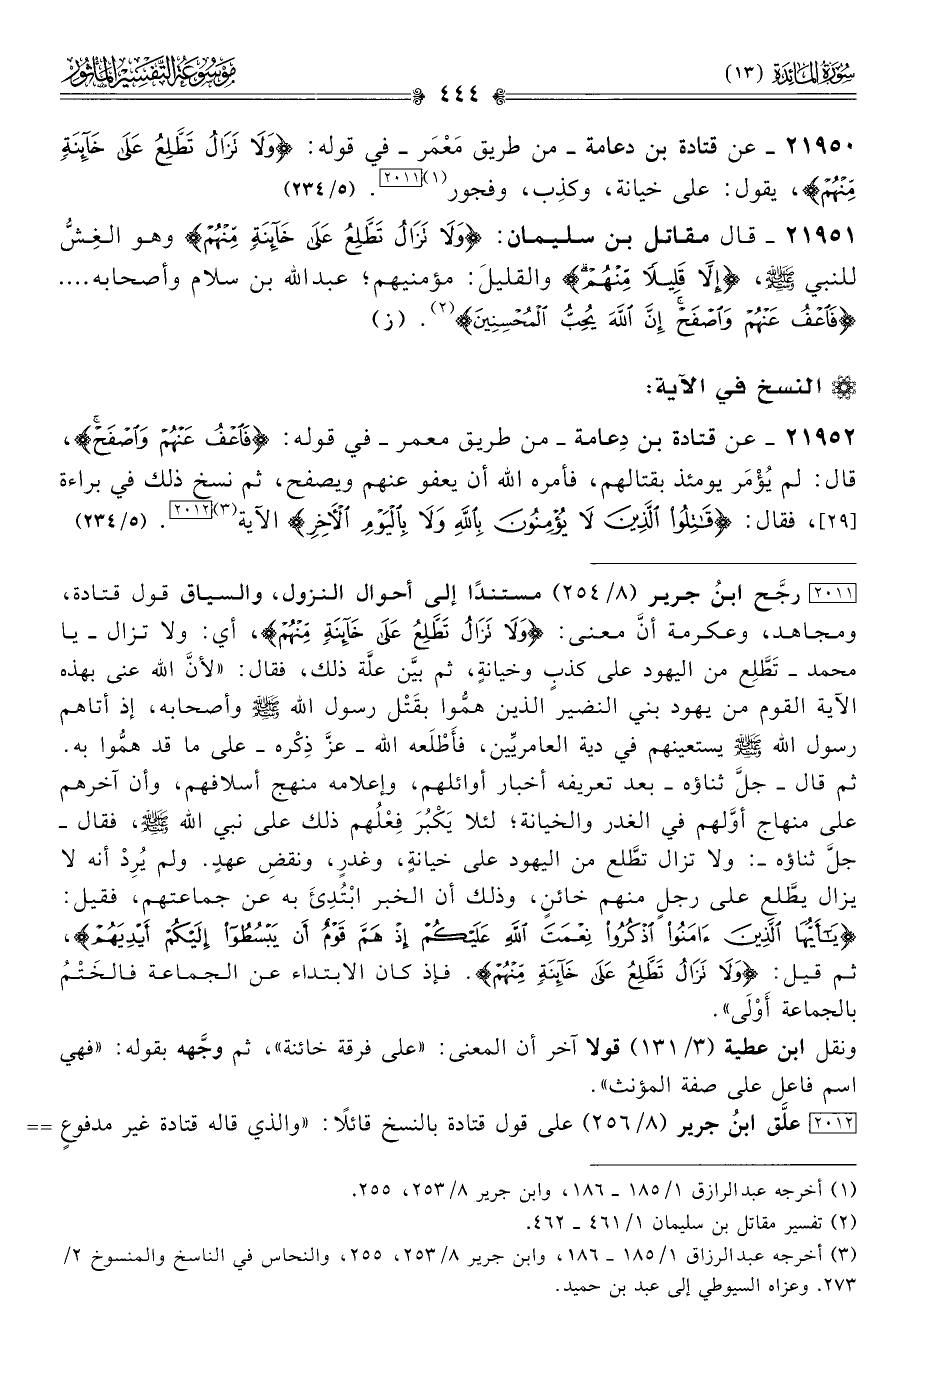 سورة المائدة (١٣)
٤٤٤
موسوعة التفسير المأثور
٢١٩٥٠ ـ عن قتادة بن دعامة ـ من طريق مَعْمَر ـ في قوله: ﴿وَلَا نَزَالُ تَطَّلِعُ عَلَىٰ خَآئِنَةٖ
مِّنۡهُمۡ﴾، يقول: على خيانة، وكذِب، وفجور(١)[٢٠١١]. (٥/ ٢٣٤)
٢١٩٥١ ـ قال مقاتل بن سليمان: ﴿وَلَا نَزَالُ تَطَّلِعُ عَلَىٰ خَآئِنَةٖ مِّنۡهُمۡ﴾ وهو الغِشُّ
للنبي ﷺ، ﴿إِلَّا قَلِيلٗا مِّنۡهُمۡۖ﴾ والقليلَ: مؤمنيهم؛ عبدالله بن سلام وأصحابه....
﴿فَٱعۡفُ عَنۡهُمۡ وَٱصۡفَحۡۚ إِنَّ ٱللَّهَ يُحِبُّ ٱلۡمُحۡسِنِينَ﴾(٢). (ز)
النسخ في الآية:
٢١٩٥٢ ـ عن قتادة بن دِعامة ـ من طريق معمر ـ في قوله: ﴿فَٱعۡفُ عَنۡهُمۡ وَٱصۡفَحۡۚ﴾،
قال: لم يُؤْمَر يومئذ بقتالهم، فأمره الله أن يعفو عنهم ويصفح، ثم نسخ ذلك في براءة
[٢٩]، فقال: ﴿قَٰتِلُواْ ٱلَّذِينَ لَا يُؤۡمِنُونَ بِٱللَّهِ وَلَا بِٱلۡيَوۡمِ ٱلۡأٓخِرِ﴾ الآية(٣)[٢٠١٢]. (٥/ ٢٣٤)
[٢٠١١] رجَّح ابنُ جرير (٨/ ٢٥٤) مستندًا إلى أحوال النزول، والسياق قول قتادة،
ومجاهد، وعكرمة أنَّ معنى: ﴿وَلَا نَزَالُ تَطَّلِعُ عَلَىٰ خَآئِنَةٖ مِّنۡهُمۡ﴾، أي: ولا تزال ـ يا
محمد ـ تَطَّلِع من اليهود على كذبٍ وخيانةٍ، ثم بيَّن علَّة ذلك، فقال: «لأنَّ الله عنى بهذه
الآية القوم من يهود بني النضير الذين همُّوا بقَتْل رسول الله ﷺ وأصحابه، إذ أتاهم
رسول الله ﷺ يستعينهم في دية العامريِّين، فأَطْلَعه الله ـ عزَّ ذِكْره ـ على ما قد همُّوا به.
ثم قال ـ جلَّ ثناؤه ـ بعد تعريفه أخبار أوائلهم، وإعلامه منهج أسلافهم، وأن آخرهم
على منهاج أوَّلهم في الغدر والخيانة؛ لئلا يَكْبُرَ فِعْلُهم ذلك على نبي الله ﷺ، فقال ـ
جلَّ ثناؤه ـ: ولا تزال تطَّلع من اليهود على خيانةٍ، وغدرٍ، ونقضِ عهدٍ. ولم يُرِدْ أنه لا
يزال يطَّلع على رجلٍ منهم خائنٍ، وذلك أن الخبر ابْتُدِئَ به عن جماعتهم، فقيل:
﴿يَٰٓأَيُّهَا ٱلَّذِينَ ءَامَنُواْ ٱذۡكُرُواْ نِعۡمَتَ ٱللَّهِ عَلَيۡكُمۡ إِذۡ هَمَّ قَوۡمٌ أَن يَبۡسُطُوٓاْ إِلَيۡكُمۡ أَيۡدِيَهُمۡ﴾،
ثم قيل: ﴿وَلَا نَزَالُ تَطَّلِعُ عَلَىٰ خَآئِنَةٖ مِّنۡهُمۡ﴾. فإذ كان الابتداء عن الجماعة فالخَتْمُ
بالجماعة أَوْلَى».
ونقل ابن عطية (٣/ ١٣١) قولا آخر أن المعنى: «على فرقة خائنة»، ثم وجَّهه بقوله: «فهي
اسم فاعل على صفة المؤنث».
[٢٠١٢] علَّق ابنُ جرير (٨/ ٢٥٦) على قول قتادة بالنسخ قائلًا: «والذي قاله قتادة غير مدفوعٍ ==
(١) أخرجه عبدالرازق ١/ ١٨٥ ـ ١٨٦، وابن جرير ٨/ ٢٥٣، ٢٥٥.
(٢) تفسير مقاتل بن سليمان ١/ ٤٦١ ـ ٤٦٢.
(٣) أخرجه عبدالرزاق ١/ ١٨٥ ـ ١٨٦، وابن جرير ٨/ ٢٥٣، ٢٥٥، والنحاس في الناسخ والمنسوخ ٢/
٢٧٣. وعزاه السيوطي إلى عبد بن حميد.